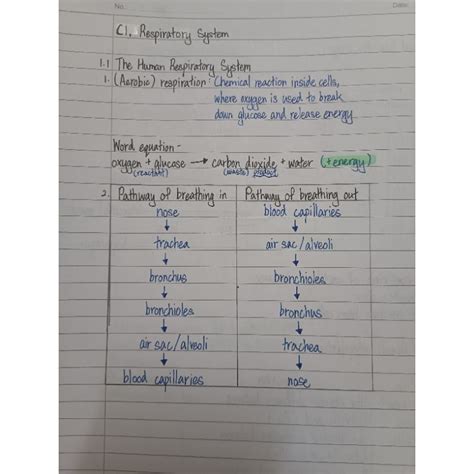 No.
Date:
C1. Respiratory System
1.1 The Human Respiratory System
1. (Aerobic) respiration: Chemical reaction inside cells,
where oxygen is used to break
down glucose and release energy
Word equation -
oxygen + glucose → carbon dioxide + water (+ energy)
(reactant) (waste) product
2. Pathway of breathing in Pathway of breathing out
nose blood capillaries
↓ ↓
trachea air sac/alveoli
↓ ↓
bronchus bronchioles
↓ ↓
bronchioles bronchus
↓ ↓
air sac/alveoli trachea
↓ ↓
blood capillaries nose